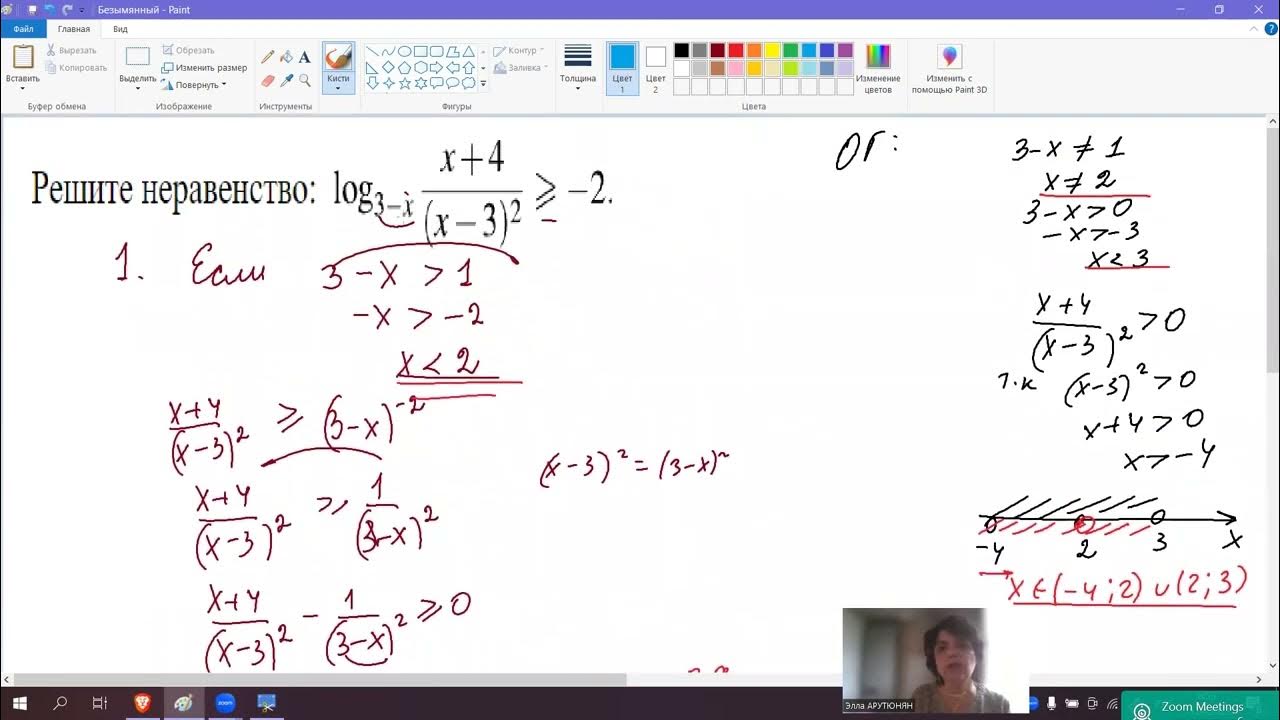 Безымянный - Paint
Файл Главная Вид
Вставить
Вырезать
Копировать
Буфер обмена
Выделить
Обрезать
Изменить размер
Повернуть
Изображение
Инструменты
Кисти
Контур
Заливка
Фигуры
Толщина
Цвет 1
Цвет 2
Изменение цветов
Цвета
Изменить с помощью Paint 3D
Решите неравенство: log_{3-x} (x+4)/(x-3)² ⩾ -2.
1. Если 3-x > 1
-x > -2
x < 2
(x+4)/(x-3)² ⩾ (3-x)^{-2}
(x+4)/(x-3)² ⩾ 1/(3-x)²
(x+4)/(x-3)² - 1/(3-x)² ⩾ 0
(x-3)² = (3-x)²
ОГ:
3-x ≠ 1
x ≠ 2
3-x > 0
-x > -3
x < 3
(x+4)/(x-3)² > 0
т.к (x-3)² > 0
x+4 > 0
x > -4
-4 2 3 x
x ∈ (-4; 2) ∪ (2; 3)
Элла АРУТЮНЯН
zoom
Zoom Meetings